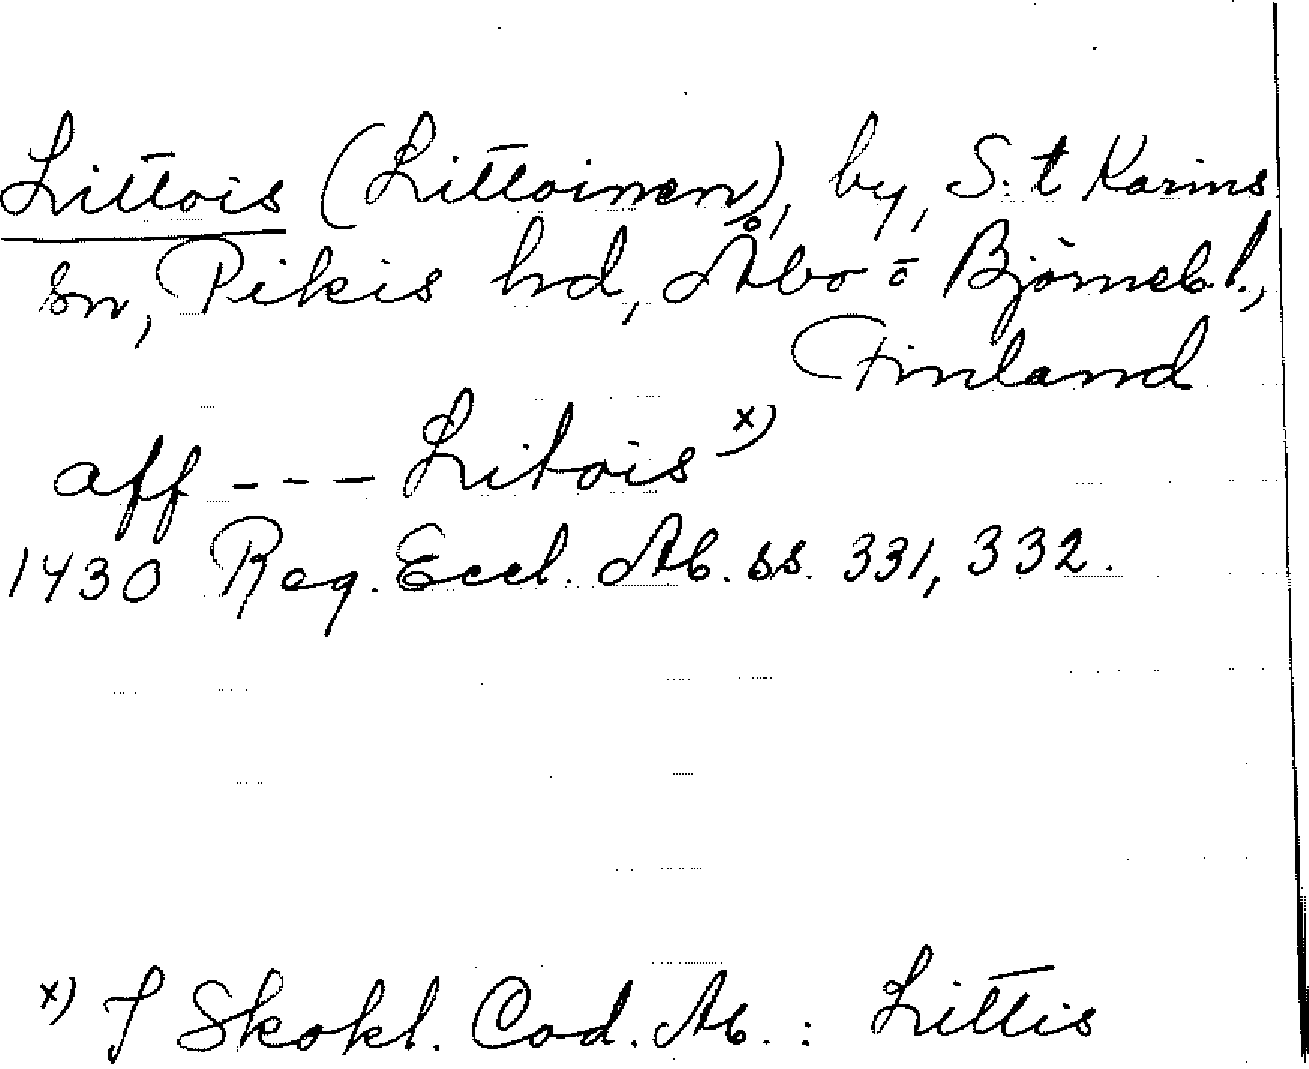 Littois (Littoinen), by, S:t Karins
sn, Pikis hd, Åbo o Björnebl.,
Finland
aff --- Litois x)
1430 Reg. Eccl. Ab. ss. 331, 332.
x) I Skokl. Cod. Ab. : Littis